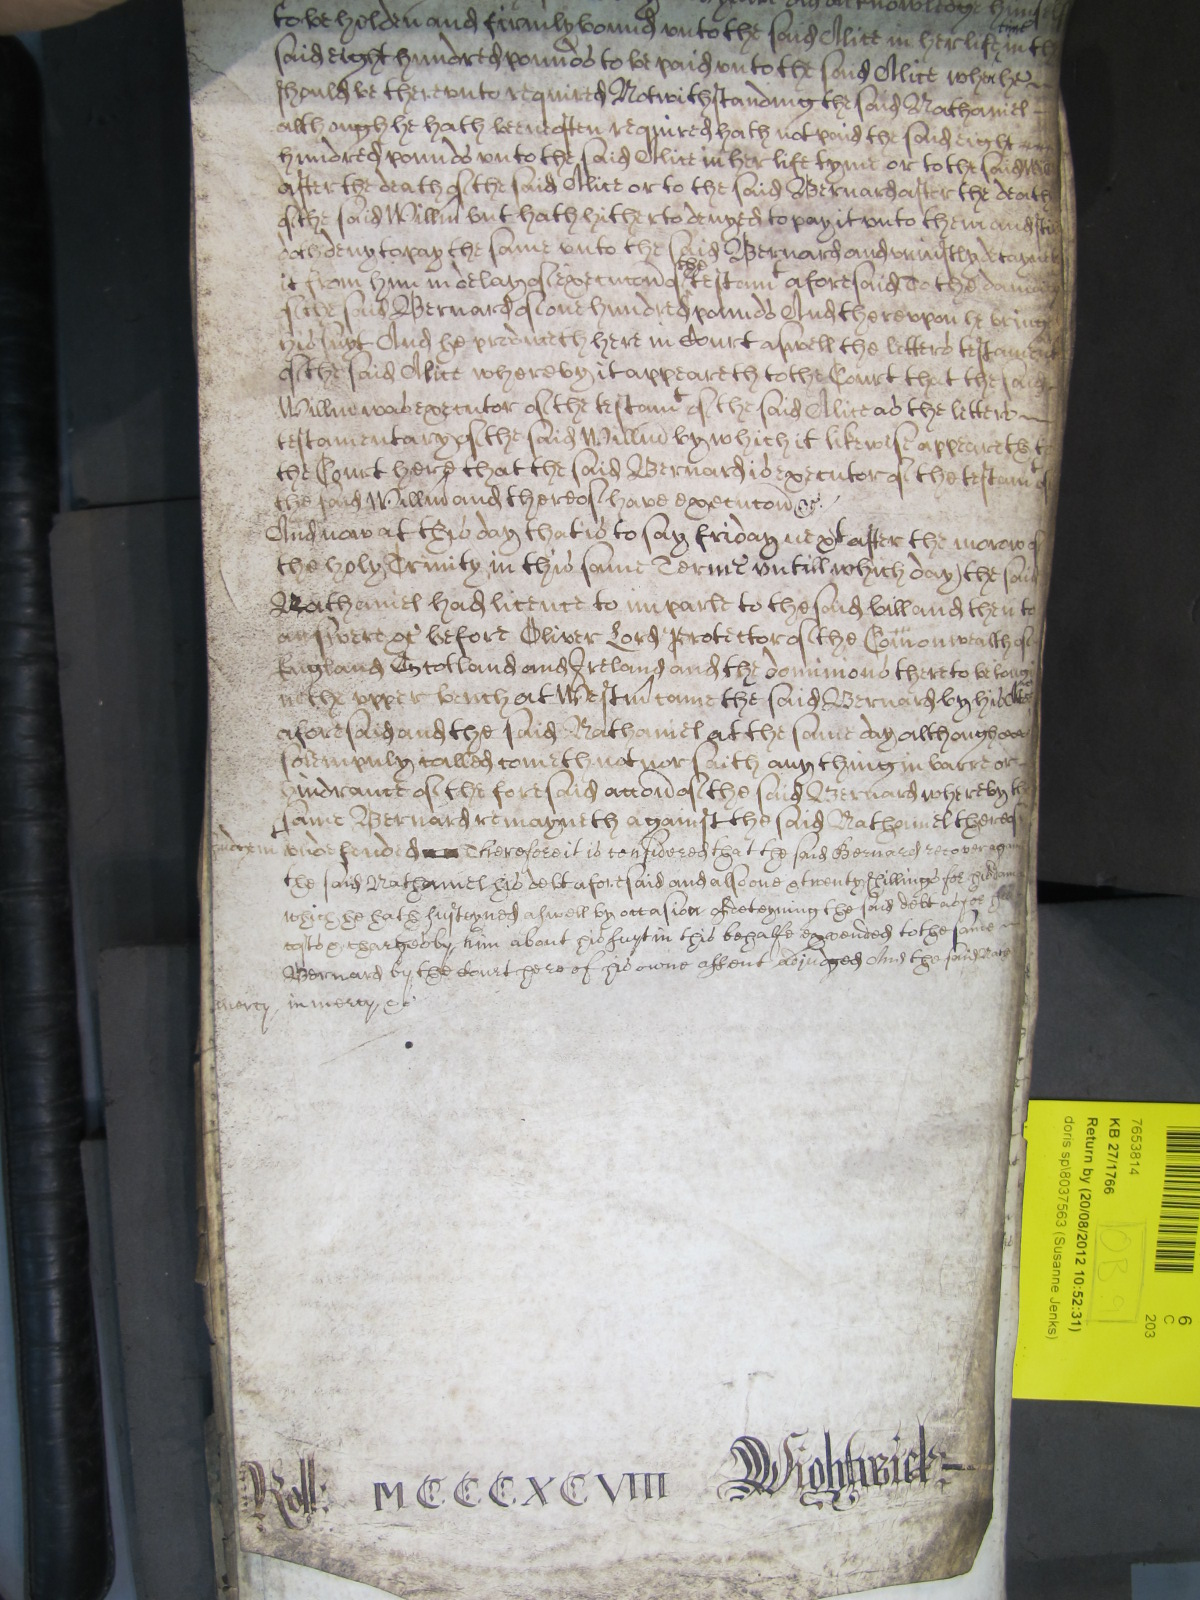 to be holden and firmly bound unto the said Alice in her life tyme in the
said eight hundred pounds to be paid unto the said Alice when he
should be thereunto required Notwithstanding the said Nathaniel
although he hath beene often required hath not paid the said eight
hundred pounds unto the said Alice in her life tyme or to the said Willm
after the death of the said Alice or to the said Bernard after the death
of the said Willm but hath hitherto denyed to pay it unto them and still
doth deny to pay the same unto the said Bernard and uniustly detayneth
it from him in delay of execucon of the testamt aforesaid To the damage
of the said Bernard of one hundred pounds And thereupon he bringeth
his suyt And he produceth here in Court aswell the letters testamentary
of the said Alice whereby it appeareth to the Court that the said
Willm was executor of the testamt of the said Alice as the letters
testamentary of the said Willm by which it likewise appeareth to
the Court here that the said Bernard is executor of the testamt of
the said Willm and thereof have execucon &c.
And now at this day that is to say friday next after the morow of
the holy Trinity in this same Terme untill which day the said
Nathaniel had licence to imparle to the said bill and then to
answere &c before Oliver Lord Protector of the Comonwealth of
England Scotland and Ireland and the dominions thereto belonging
in the upper bench at Westm came the said Bernard by his
aforesaid and the said Nathaniel at the same day although
solempnly called cometh not nor saith any thing in barre or
hindrance of the foresaid accon of the said Bernard whereby the
same Bernard remayneth against the said Nathaniel thereof
undefended Therefore it is considered that the said Bernard recover against
the said Nathaniel his debt aforesaid and also one & twenty shillings for his damages
which he hath susteyned aswell by occasion of deteyning the said debt as for his
costs & charges by him about his suyt in this behalfe expended to the same
Bernard by the Court here of his owne assent adjudged And the said Nath
mercy in mercy &c
Roll: MCCCCXCVIII Wightwick
7653814
KB 27/1766
Return by (20/08/2012 10:52:31)
doris sp\8037563 (Susanne Jenks)
6
C
203